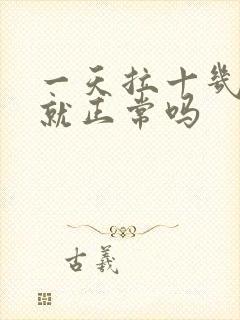 一天拉十几
就正常吗
古羲